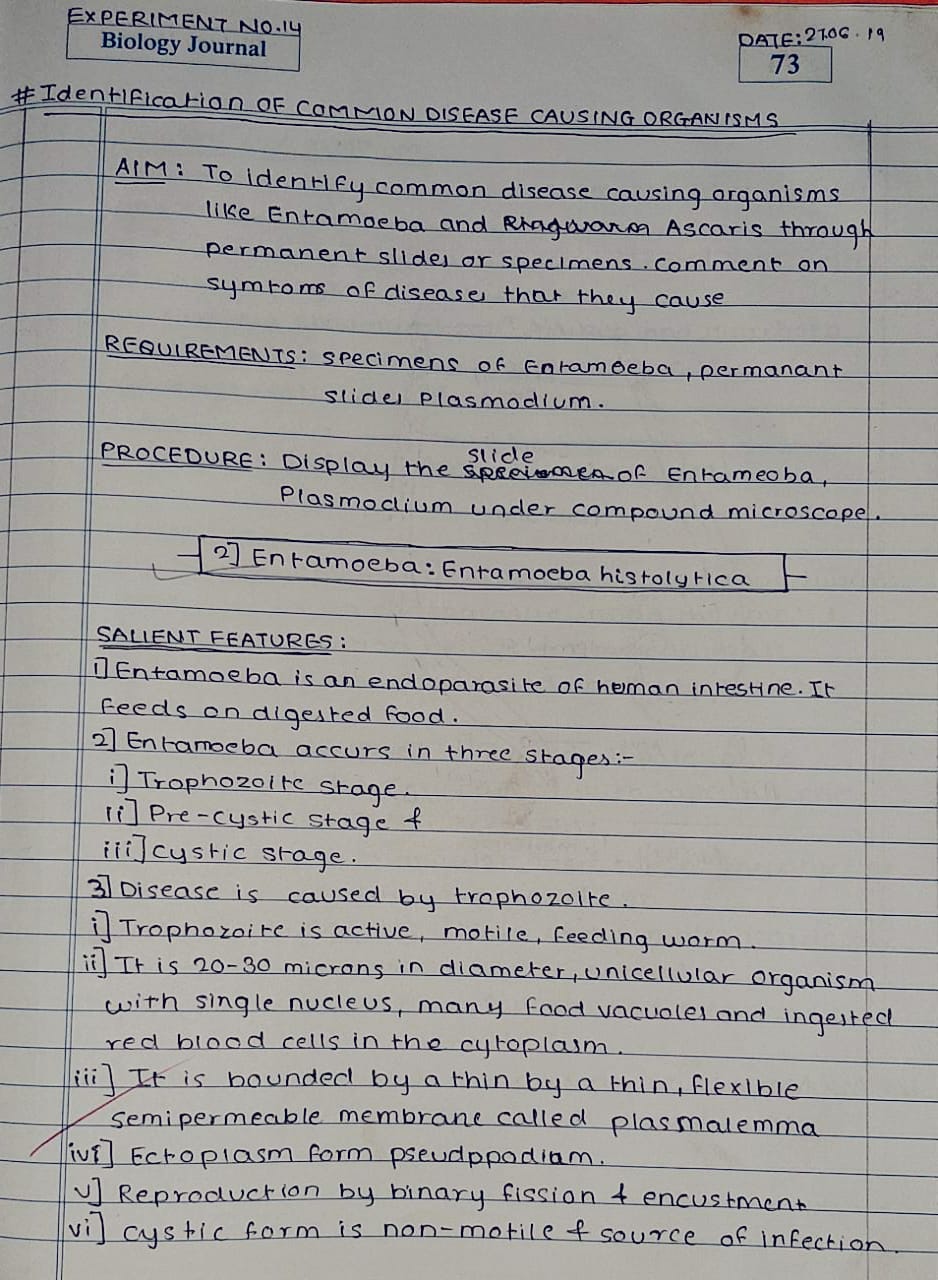 EXPERIMENT NO.14
Biology Journal
DATE: 27.06.19
73
# Identification OF COMMON DISEASE CAUSING ORGANISMS
AIM: To identify common disease causing organisms
like Entamoeba and Ascaris through
permanent slides or specimens. comment on
symtoms of diseases that they cause
REQUIREMENTS: specimens of Entamoeba, permanant
slides Plasmodium.
PROCEDURE: Display the slide of Entameoba,
Plasmodium under compound microscope.
2] Entamoeba: Entamoeba histolytica
SALIENT FEATURES:
1] Entamoeba is an endoparasite of heman intestine. It
feeds on digested food.
2] Entamoeba accurs in three stages:-
i] Trophozoite stage.
ii] Pre-cystic stage &
iii] cystic stage.
3] Disease is caused by trophozoite.
i] Trophozoite is active, motile, feeding worm.
ii] It is 20-30 microns in diameter, unicellular organism
with single nucleus, many food vacuoles and ingested
red blood cells in the cytoplasm.
iii] It is bounded by a thin by a thin, flexible
semipermeable membrane called plasmalemma
iv] Ectoplasm form pseudppodiam.
v] Reproduction by binary fission & encustment
vi] cystic form is non-motile & source of infection.